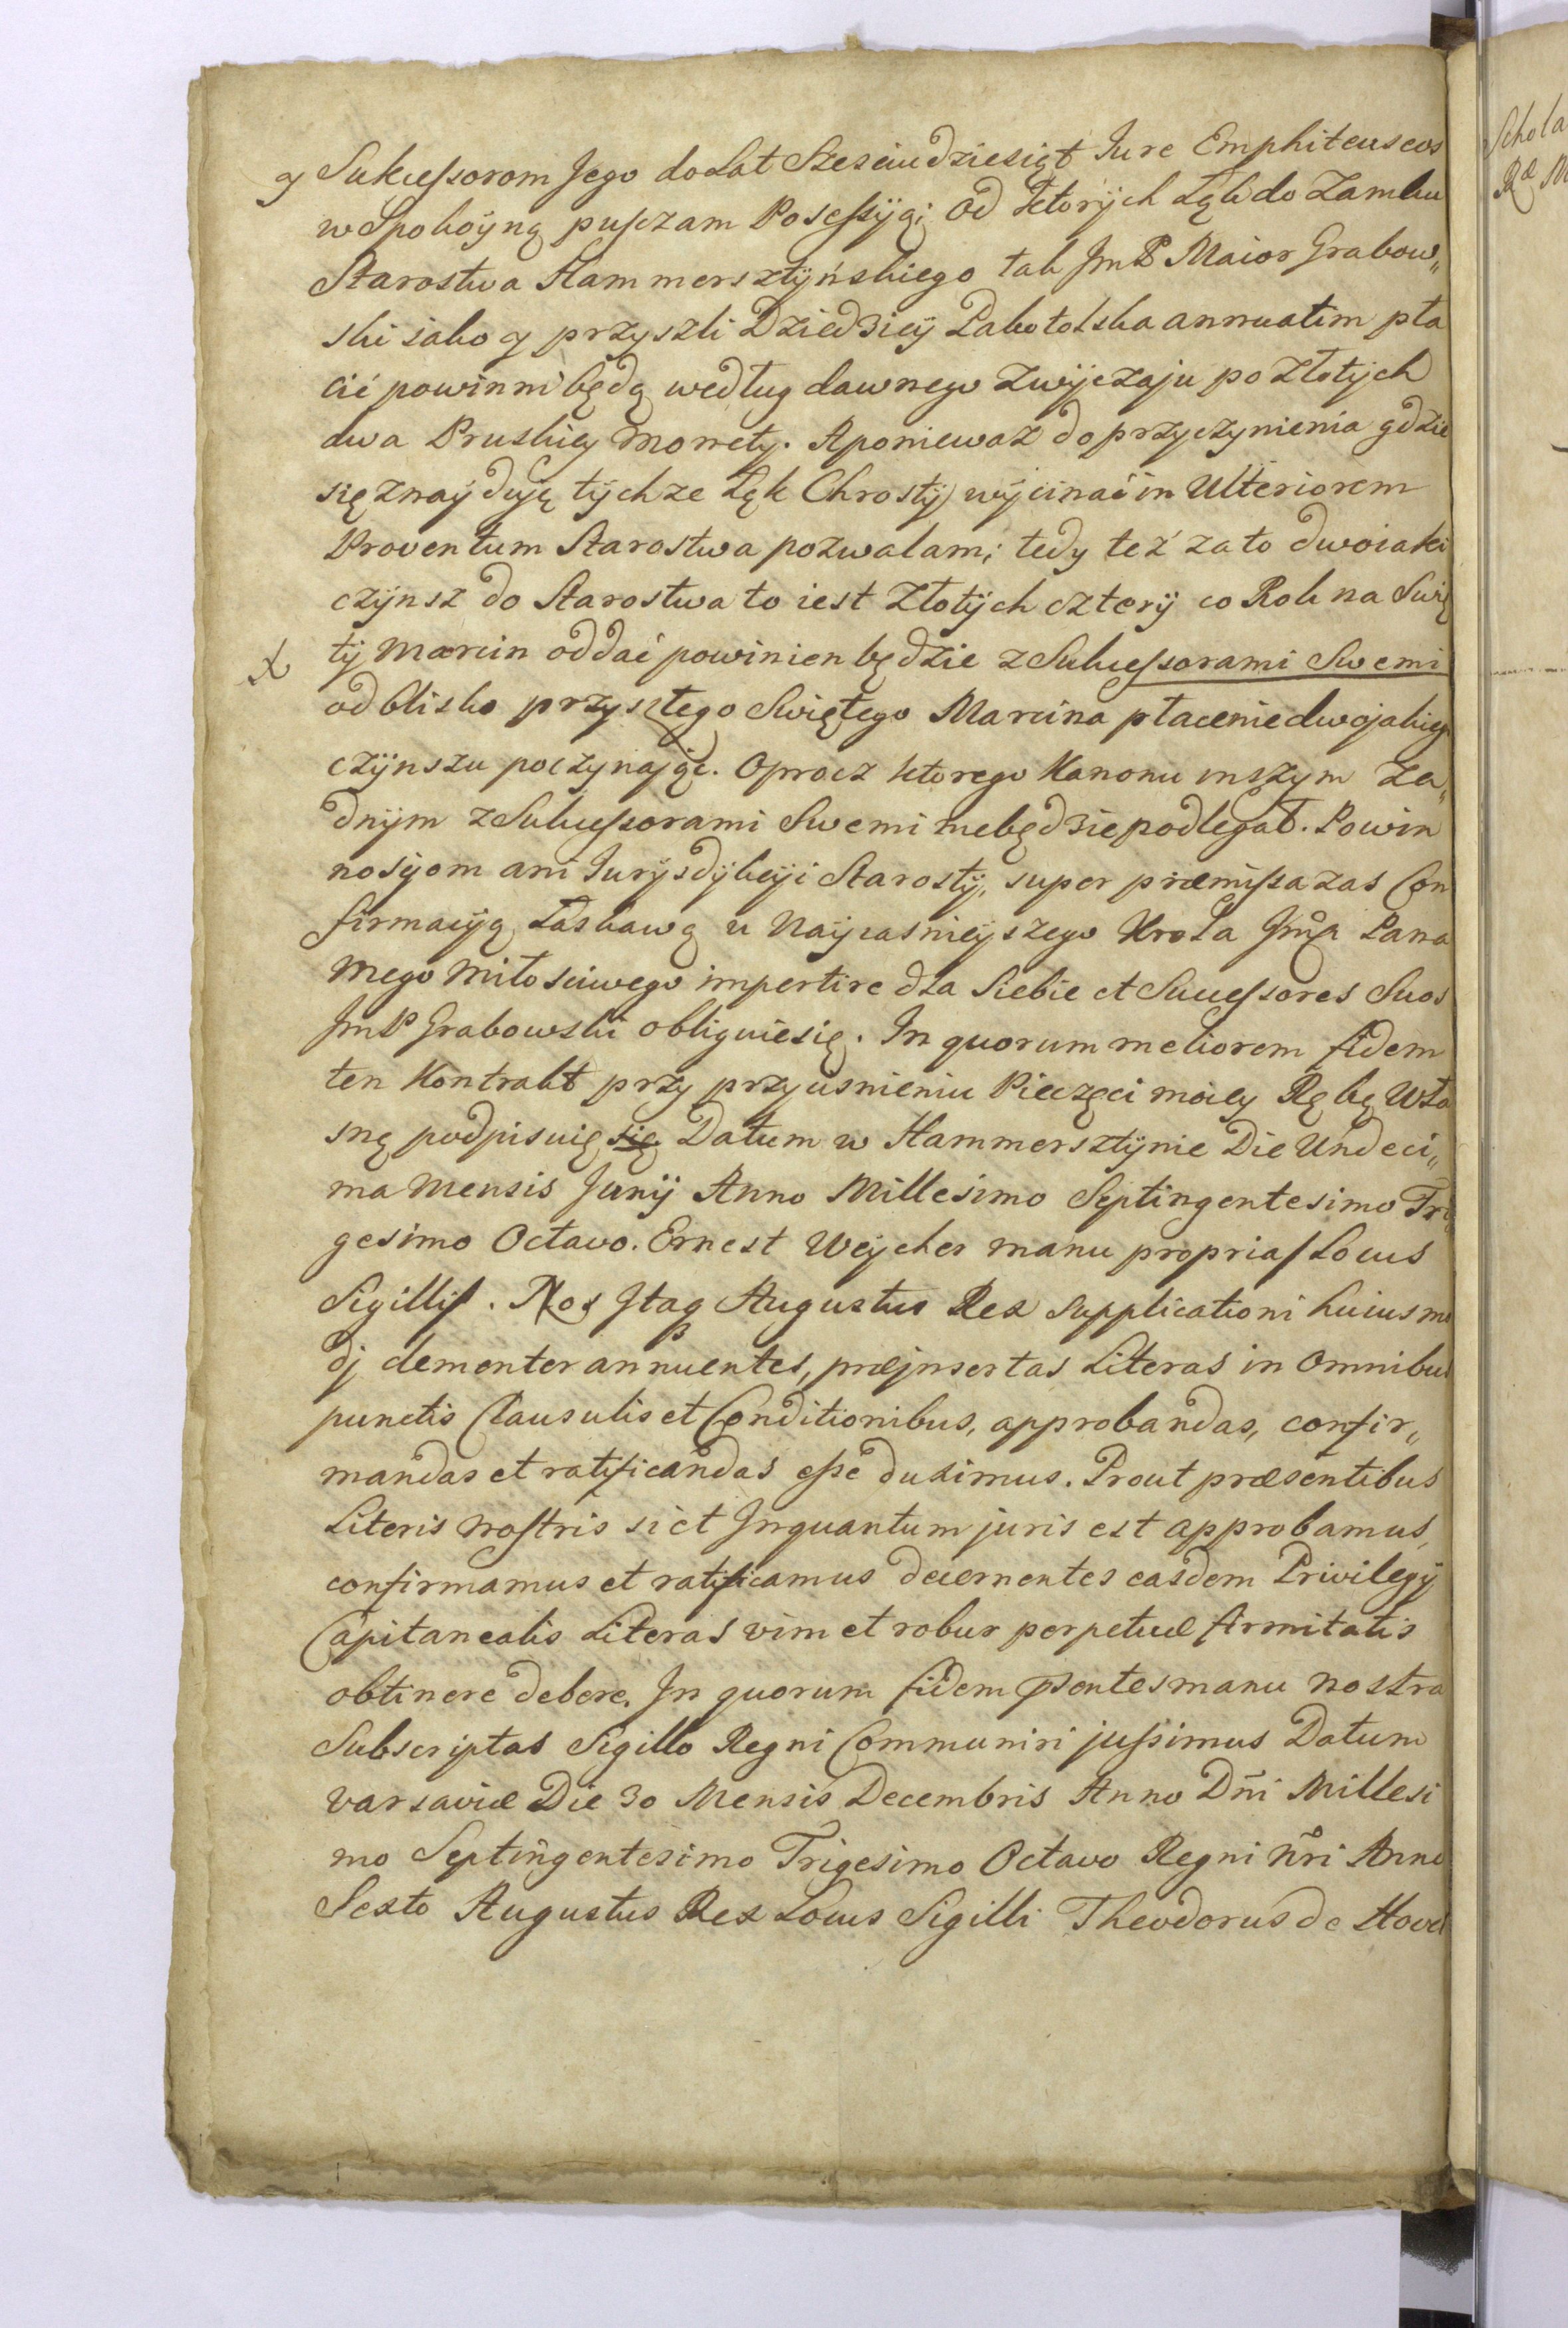 y Sukcessorom Jego do Lat Szesciudziesiąt Jure Emphiteuseos
w Spokoÿną pusczam Posessÿą; od ktorÿch Łąk do Zamku
Starostwa Hammersztÿńskiego tak Jm P Maior Grabow„
ski iako y przyszli Dziedzicÿ Pakotolska annuatim pła
cić powinni będą według dawnego Zwÿczaju po Złotÿch
dwa Pruskiey Monety. A poniewaz do przyczynienia gdzie
się znaÿduią tÿchze Łąk Chrostÿ wÿcinać in Ulteriorem
Proventum Starostwa pozwalam; tedy też za to dwoiaki
czÿnsz do Starostwa to iest Złotÿch czterÿ co Rok na Swię
tÿ Marcin oddać powinien będzie z Sukcessorami Swemi
od blisko przyszłego Swiętego Marcina płacenie dwojakieg
czÿnszu poczynając. Oprocz ktorego Kanonu inszym Za„
dnÿm z Sukcessorami Swemi niebędzie podlegał. Powin
nosÿom ani Jurÿsdÿkcÿi Starostÿ, super præmissa zas Con
firmacÿą Łaskawą u Naÿiasnieÿszego Krola Jmci Pana
Mego Miłosciwego impertire dla Siebie et Successores Suos
Jm P Grabowski obliguie się. In quorum meliorem fidem
ten Kontrakt przy przycisnieniu Pieczęci moiey Ręką Wła
sną podpisuię się Datum w Hammersztÿnie Die Undeci„
ma Mensis Junÿ Anno Millesimo Septingentesimo Tri
gesimo Octavo. Ernest Weÿcher manu propria / Locus
Sigilli /. Nos Itaq Augustus Rex supplicationi huiusmo
dj clementer annuentes, præjnsertas Literas in Omnibus
punctis Clausulis et Conditionibus, approbandas, confir„
mandas et ratificandas esse duximus. Prout præsentibus
Literis nostris sict Jnquantum juris est approbamus,
confirmamus et ratificamus decernentes easdem Privilegÿ
Capitanealis Literas vim et robur perpetuæ firmitatis
obtinere debere. In quorum fidem pſentes manu nostra
Subscriptas Sigillo Regni Communiri jussimus Datum
Varsaviæ Die 30 Mensis Decembris Anno Dñi Millesi
mo Septingentesimo Trigesimo Octavo Regni nri Anno
Sexto Augustus Rex Locus Sigilli Theodorus de
Schola